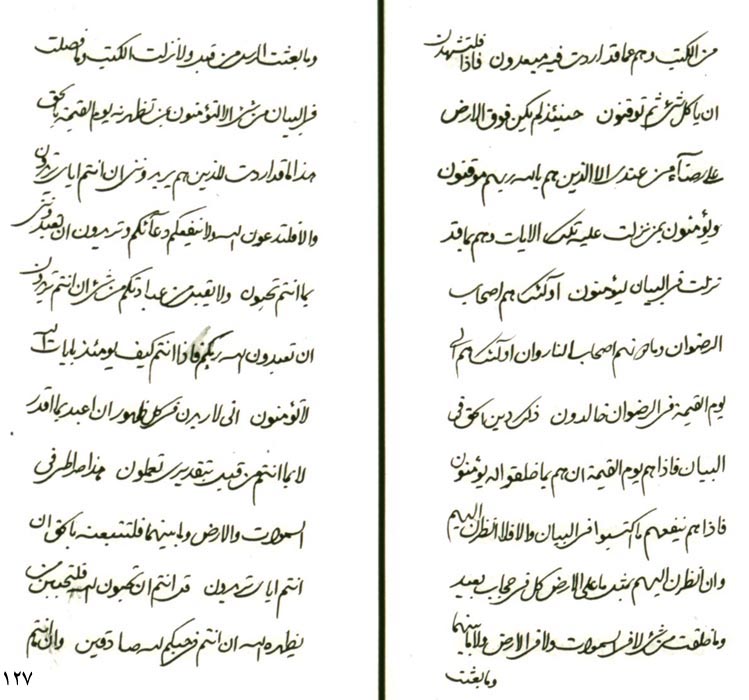 من الكتب وهم عما قد اردت فيه مبعدون فاذا فلتشهدن
ان يا كل شيء ثم توقنون حينئذ لم يكن فوق الارض
على رضاء من عندي الا الذين هم بالله ربهم موقنون
ويؤمنون بمن نزلت عليه تلك الايات وهم بما قد
نزلت في البيان ليؤمنون اولئك هم اصحاب
الرضوان وما دونهم اصحاب النار وان اولئك هم الى
يوم القيمة في الرضوان خالدون ذلك دين الحق في
البيان فاذا هم يوم القيمة ان هم بما خلقوا له يؤمنون
فاذا هم ينفعهم ما اكتسبوا في البيان والا فلا انظرن اليهم
وان انظرن اليهم مثل ما على الارض كل في حجاب بعيد
وما خلقت من شيء لا في السموات ولا في الارض ولا ما بينهما
وما بعثت
وما بعثت الرسل من قبل ولا نزلت الكتب وما فصلت
في البيان من شيء الا لتؤمنون بمن نظهرنه يوم القيمة بالحق
هذا ما قد اردت للذين هم يريدونني ان انتم اياي تريدون
والا فلتدعون الله ولا ينفعكم دعائكم وتريدون ان تعبدونني
بما انتم تحبون ولا يقبل من عبادتكم من شيء ان انتم تريدون
ان تعبدون الله ربكم فاذا انتم كيف يومئذ بايات الله
لا تؤمنون انى لاريدن في كل ظهور ان اعبد بما اقدر
لا بما انتم من قبل بتقديري تعملون هذا صراطي في
السموات والارض وما بينهما فلتتبعنه بالحق ان
انتم اياي تريدون قل انتم ان تحبون الله فلتحبن من
يظهره الله ان انتم في حبكم لله صادقين وان انتم
١٢٧